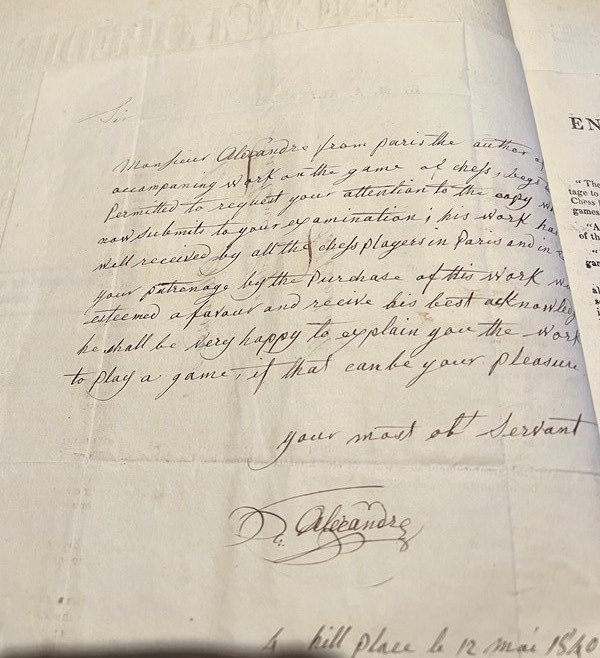 Sir
Monsieur Alexandre from paris the author of
accompaning work on the game of chess, begs
Permitted to request your attention to the copy
now Submits to your examination; his work has
well received by all the chess players in Paris and in
your patronage by the Purchase of this work
esteemed a favour and receive his best acknowledg
he shall be very happy to explain you the work
to play a game, if that can be your pleasure
your most obt Servant
Alexandre
4 hill place le 12 mai 1840
EN
"The
tage to
Chess
games
"A
of th
gar
al